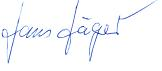 Hans Jäger